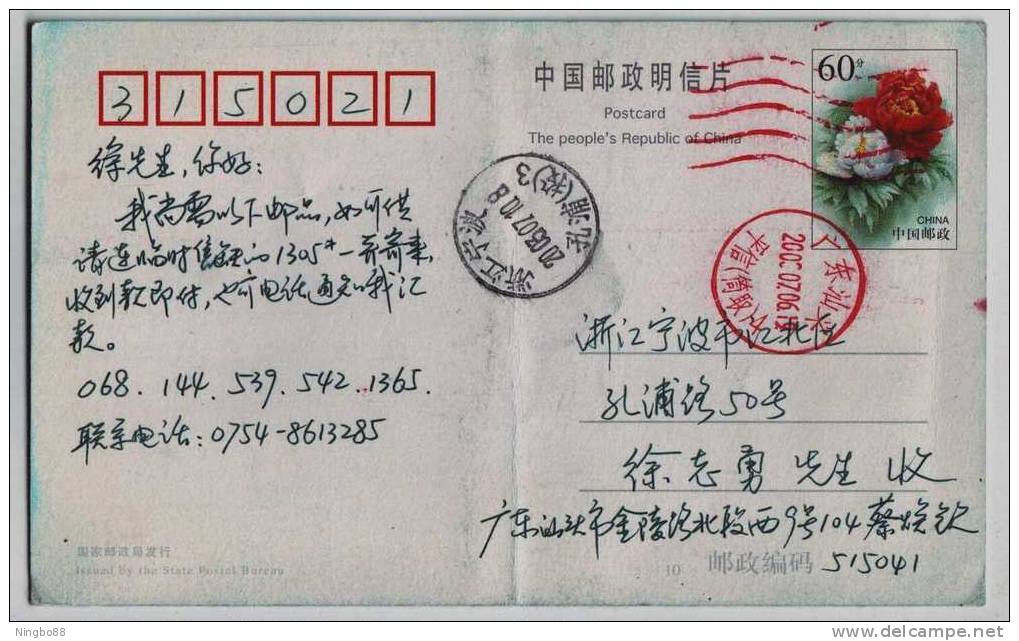 315021
中国邮政明信片
Postcard
The people's Republic of China
60分
CHINA
中国邮政
徐先生,你好:
我尚需以下邮品,如可供
请连临时信封的1305*一并寄来,
收到款即付,也可电话通知我汇
款。
068.144.539.542.1365.
联系电话:0754-8613285
浙江宁波
2003.07.10.8
孔浦(投)3
广东汕头
07.06
浙江宁波市江北区
孔浦路50号
徐志勇先生 收
广东汕头市金陵路北段西9号104蔡焕钦
国家邮政局发行
Issued by the State Postal Bureau
10 邮政编码 515041
Ningbo88
delcampe.net